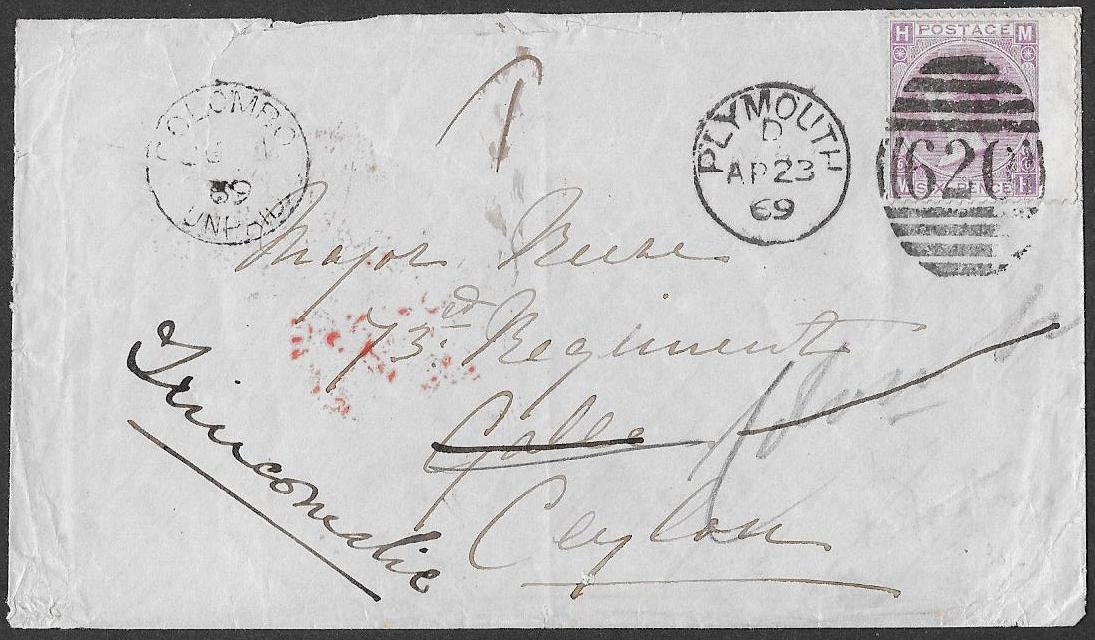 H POSTAGE M
PLYMOUTH
D
AP 23
69
620
SIX PENCE
COLOMBO
69
UNPAID
Major
73rd Regiment
Galle
Ceylon
Trincomalie